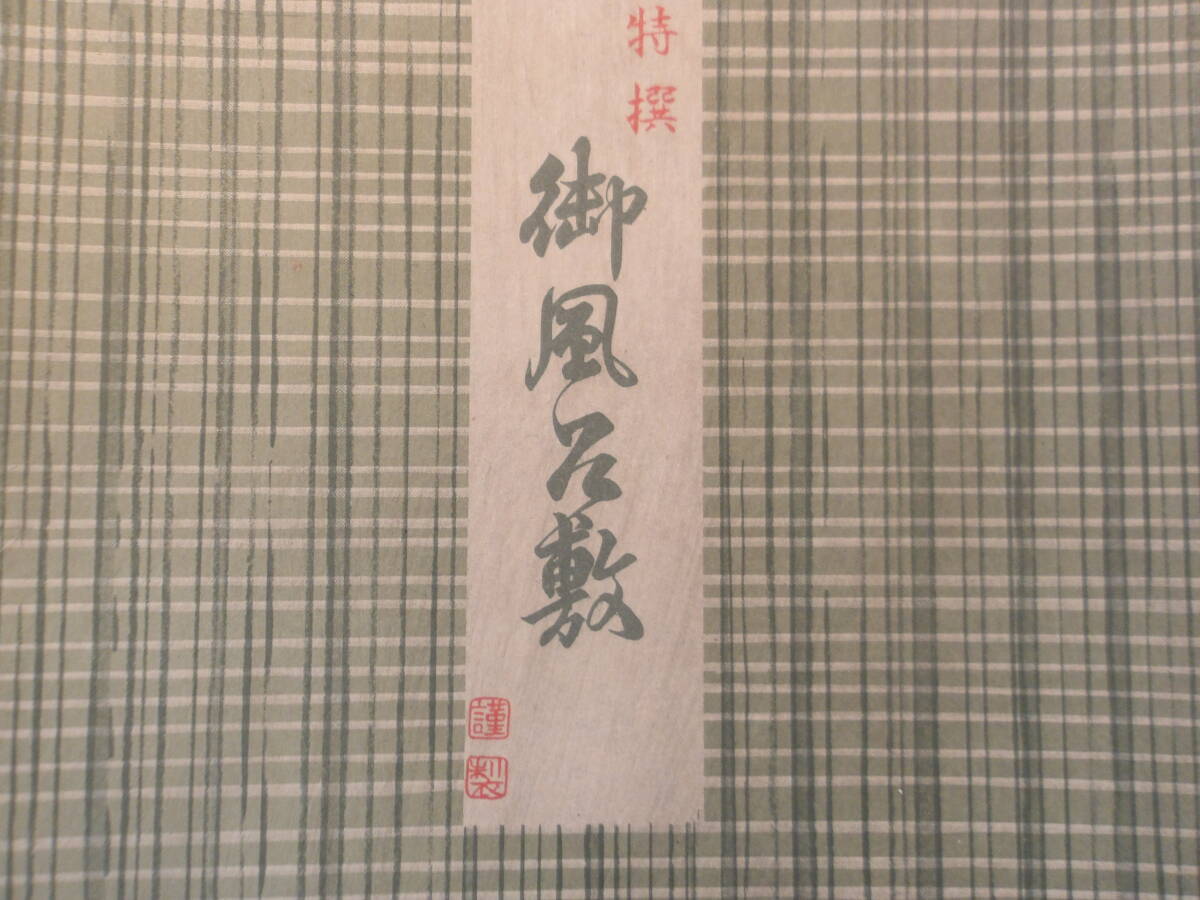 特撰
御風呂敷
謹製